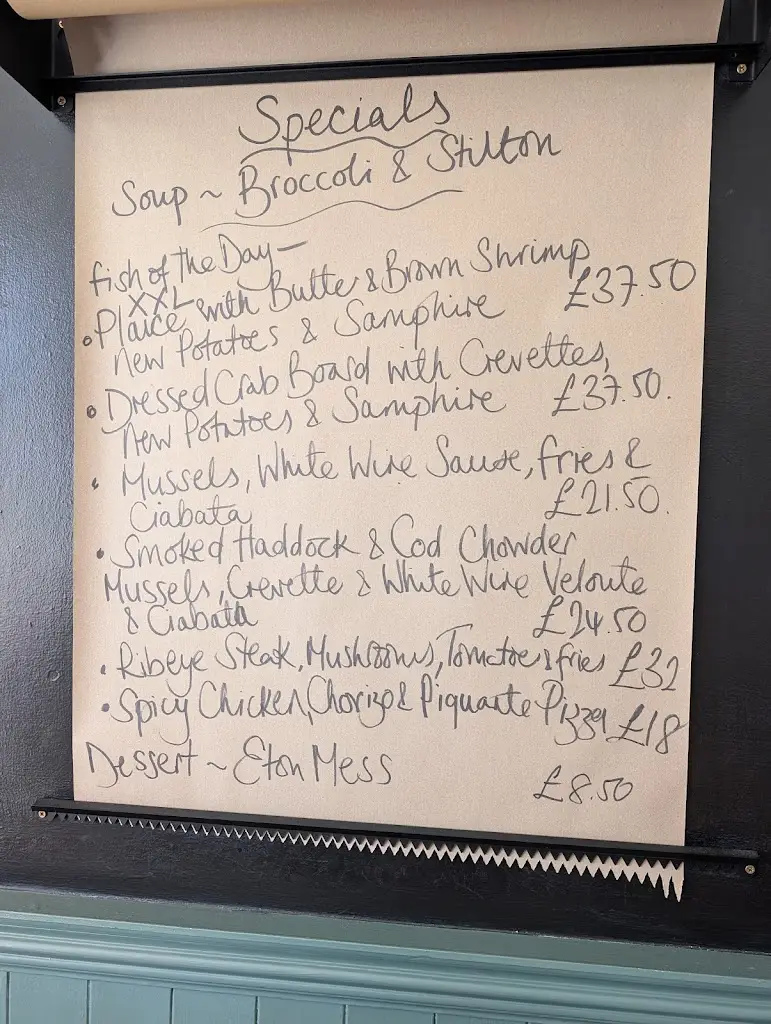 Specials
Soup ~ Broccoli & Stilton
Fish of the Day –
XXL
• Plaice with Butter & Brown Shrimp
New Potatoes & Samphire £37.50
• Dressed Crab Board with Crevettes,
New Potatoes & Samphire £37.50.
• Mussels, White Wine Sause, fries &
Ciabata £21.50.
• Smoked Haddock & Cod Chowder
Mussels, Crevette & White Wine Veloute
& Ciabata £24.50
• Ribeye Steak, Mushrooms, Tomatoe & fries £32
• Spicy Chicken, Chorizo & Piquante Pizza £18
Dessert ~ Eton Mess
£8.50